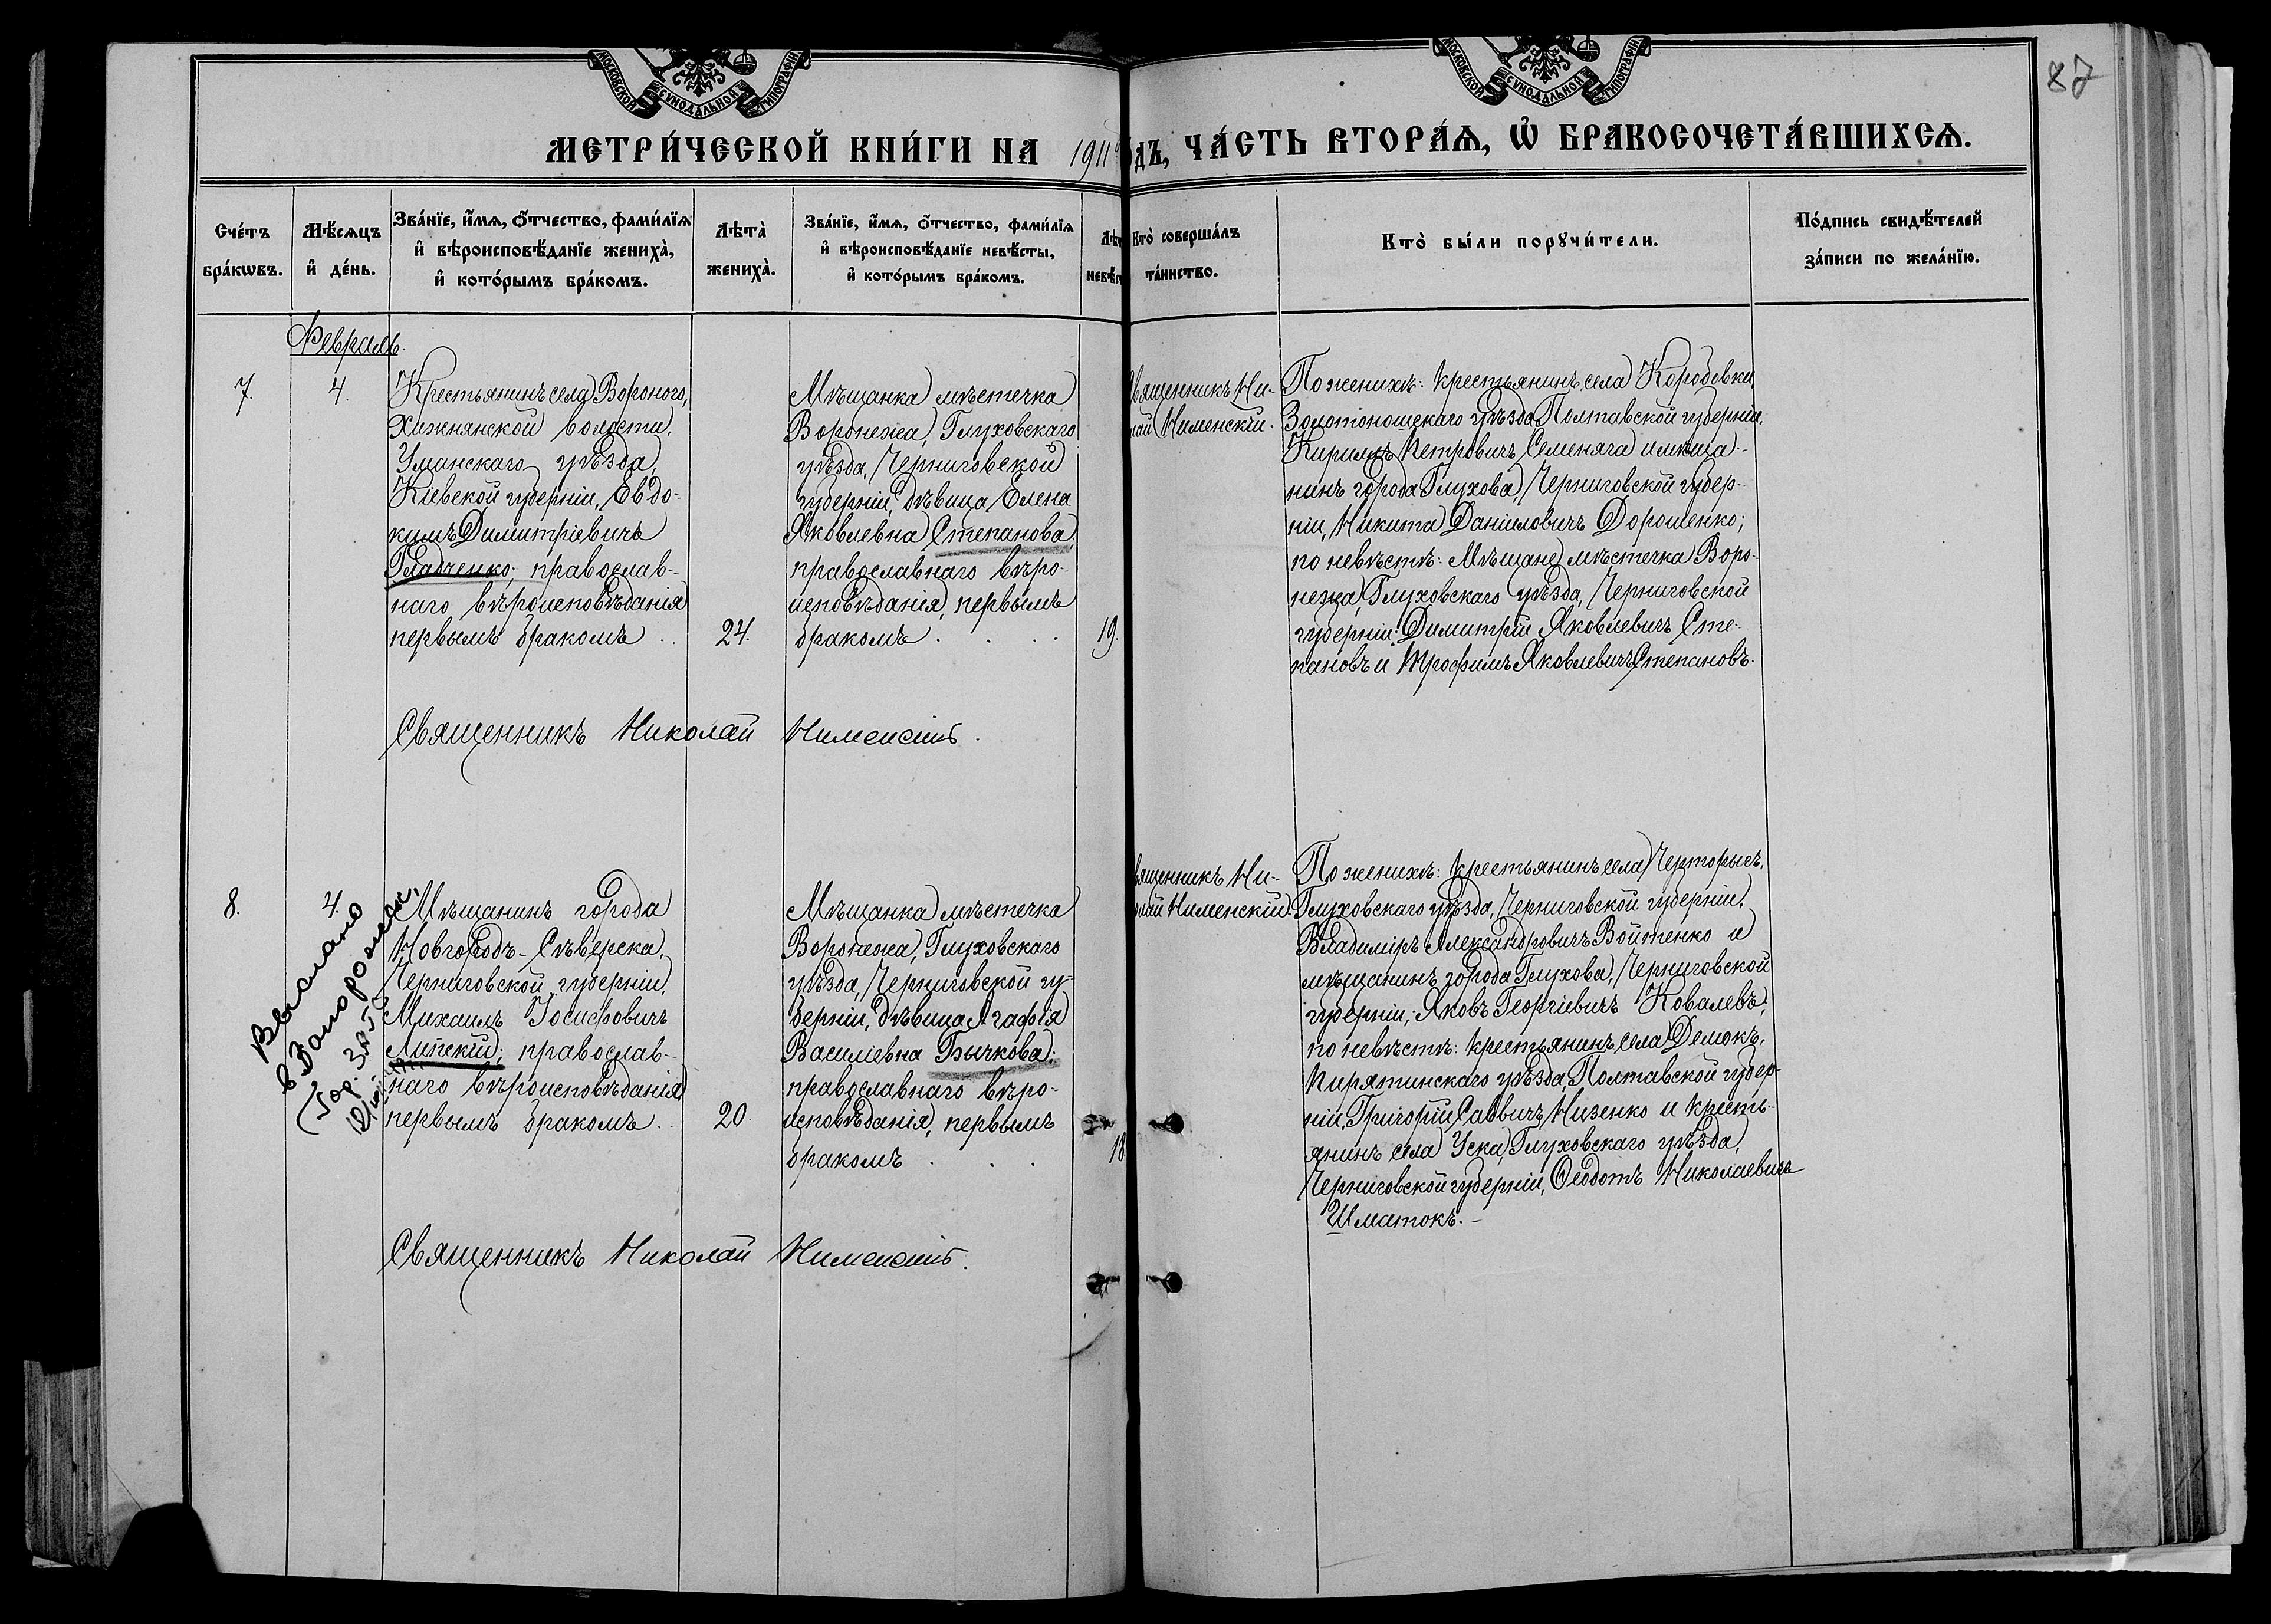 МОСКОВСКОЙ СѴНОДАЛЬНОЙ ТИПОГРАФІИ
МОСКОВСКОЙ СѴНОДАЛЬНОЙ ТИПОГРАФІИ
87
МЕТРИ́ЧЕСКОЙ КНИ́ГИ НА 1911
ДЪ, ЧА́СТЬ ВТОРА́Ѧ, Ѡ҆ БРАКОСОЧЕТА́ВШИХСѦ.
Сче́тъ
бра́кѡвъ.
Мѣ́сѧцъ
и҆ де́нь.
Зва́нїе, и҆́мѧ, ѻ҆́тчество, фами́лїѧ
и҆ вѣроисповѣ́данїе жениха̀,
и҆ кото́рымъ бра́комъ.
Лѣта̀
жениха̀.
Зва́нїе, и҆́мѧ, ѻ҆́тчество, фами́лїѧ
и҆ вѣроисповѣ́данїе невѣ́сты,
и҆ кото́рымъ бра́комъ.
Лѣт
невѣ́ст
Кто̀ соверша́лъ
та́инство.
Кто̀ бы́ли порꙋчи́тели.
По́дпись свидѣ́телей
за́писи по жела́нїю.
Февраль.
7.
4.
Крестьянинъ села Вороного,
Хижнянской волости,
Уманскаго уѣзда,
Кіевской губерніи, Евдо-
кимъ Димитріевичъ
Гладченко; православ-
наго вѣроисповѣданія
первымъ бракомъ
24.
Мѣщанка мѣстечка
Воронежа, Глуховскаго
уѣзда, Черниговской
губерніи, дѣвица Елена
Яковлевна Степанова
православнаго вѣро-
исповѣданія, первымъ
бракомъ
19.
вященникъ Ни-
лай Нименскій.
По женихѣ: крестьянинъ села Коробовки,
Золотоношскаго уѣзда, Полтавской губерніи,
Кириллъ Петровичъ Семеняга и мѣща-
нинъ города Глухова, Черниговской губер-
ніи, Никита Даніиловичъ Дорошенко;
по невѣстѣ: Мѣщане мѣстечка Воро-
нежа, Глуховскаго уѣзда, Черниговской
губерніи: Димитрій Яковлевичъ Сте-
пановъ и Трофимъ Яковлевичъ Степановъ.
Священникъ Николай Нименскій.
8.
4.
Выслано
в Запорожск.
Гор. ЗАГС
Мѣщанинъ города
Новгородъ-Сѣверска,
Черниговской губерніи,
Михаилъ Іосифовичъ
Липскій; православ-
наго вѣроисповѣданія
первымъ бракомъ
20.
Мѣщанка мѣстечка
Воронежа, Глуховскаго
уѣзда, Черниговской гу-
берніи, дѣвица Агафія
Василіевна Бычкова;
православнаго вѣро-
исповѣданія, первымъ
бракомъ
18
вященникъ Ни-
лай Нименскій.
По женихѣ: крестьянинъ села Черторыгъ,
Глуховскаго уѣзда, Черниговской губерніи,
Владиміръ Александровичъ Войтенко и
мѣщанинъ города Глухова, Черниговской
губерніи, Яковъ Георгіевичъ Ковалевъ;
по невѣстѣ: крестьянинъ села Демокъ,
Пирятинскаго уѣзда, Полтавской губер-
ніи, Григорій Саввичъ Низенко и кресть-
янинъ села Уска, Глуховскаго уѣзда,
Черниговской губерніи, Ѳеодотъ Николаевичъ
Шматокъ.
Священникъ Николай Нименскій.